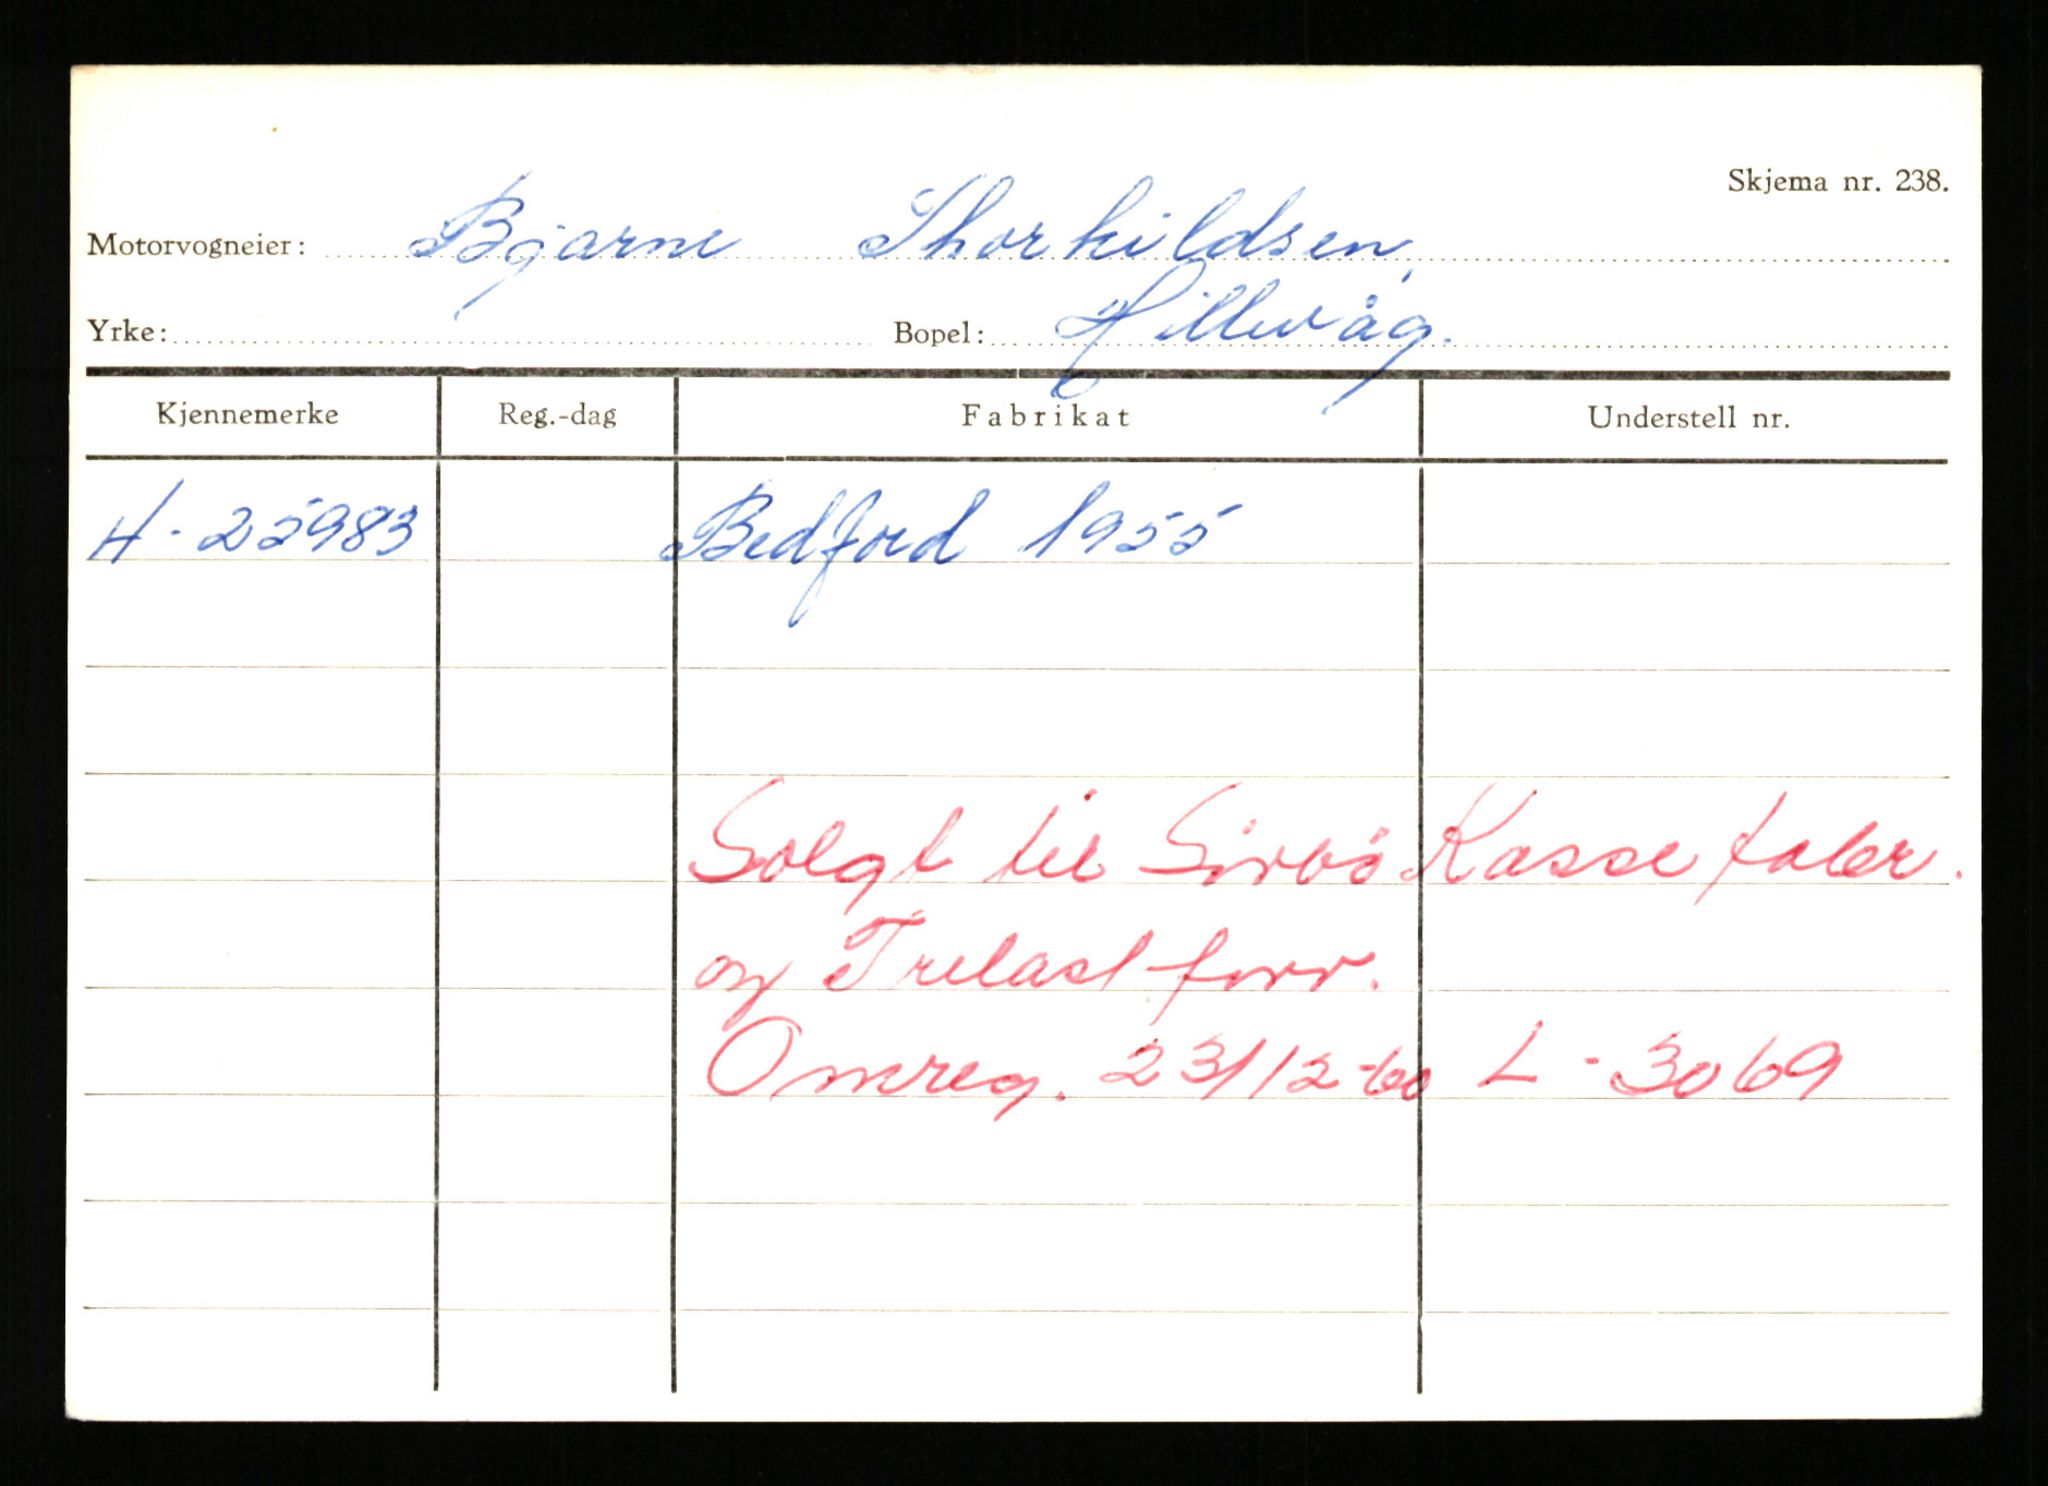 Skjema nr. 238.
Motorvogneier: Bjarne Thorkildsen,
Yrke: Bopel: Hillevåg.
Kjennemerke Reg.-dag Fabrikat Understell nr.
H-25983 Bedford 1955
Solgt til Sirbø Kassefabr.
og Trelastforr.
Omreg. 23/12-60 L-3069